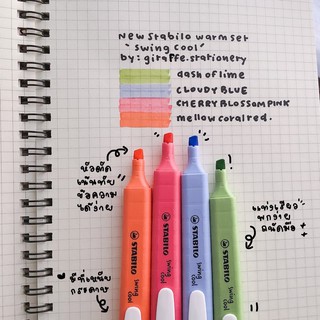 New Stabilo warm set
"Swing Cool"
by: giraffe.stationery
dash of lime
CLOUDY BLUE
CHERRY BLOSSOM PINK
mellow coral red.
หัวตัด
เน้นทับ
ข้อความ
ได้ง่าย
แท่งเรียว
พกง่าย
ถนัดมือ
มีที่หนีบ
กระดาษ
STABILO swing cool
STABILO swing cool
STABILO swing cool
STABILO swing cool